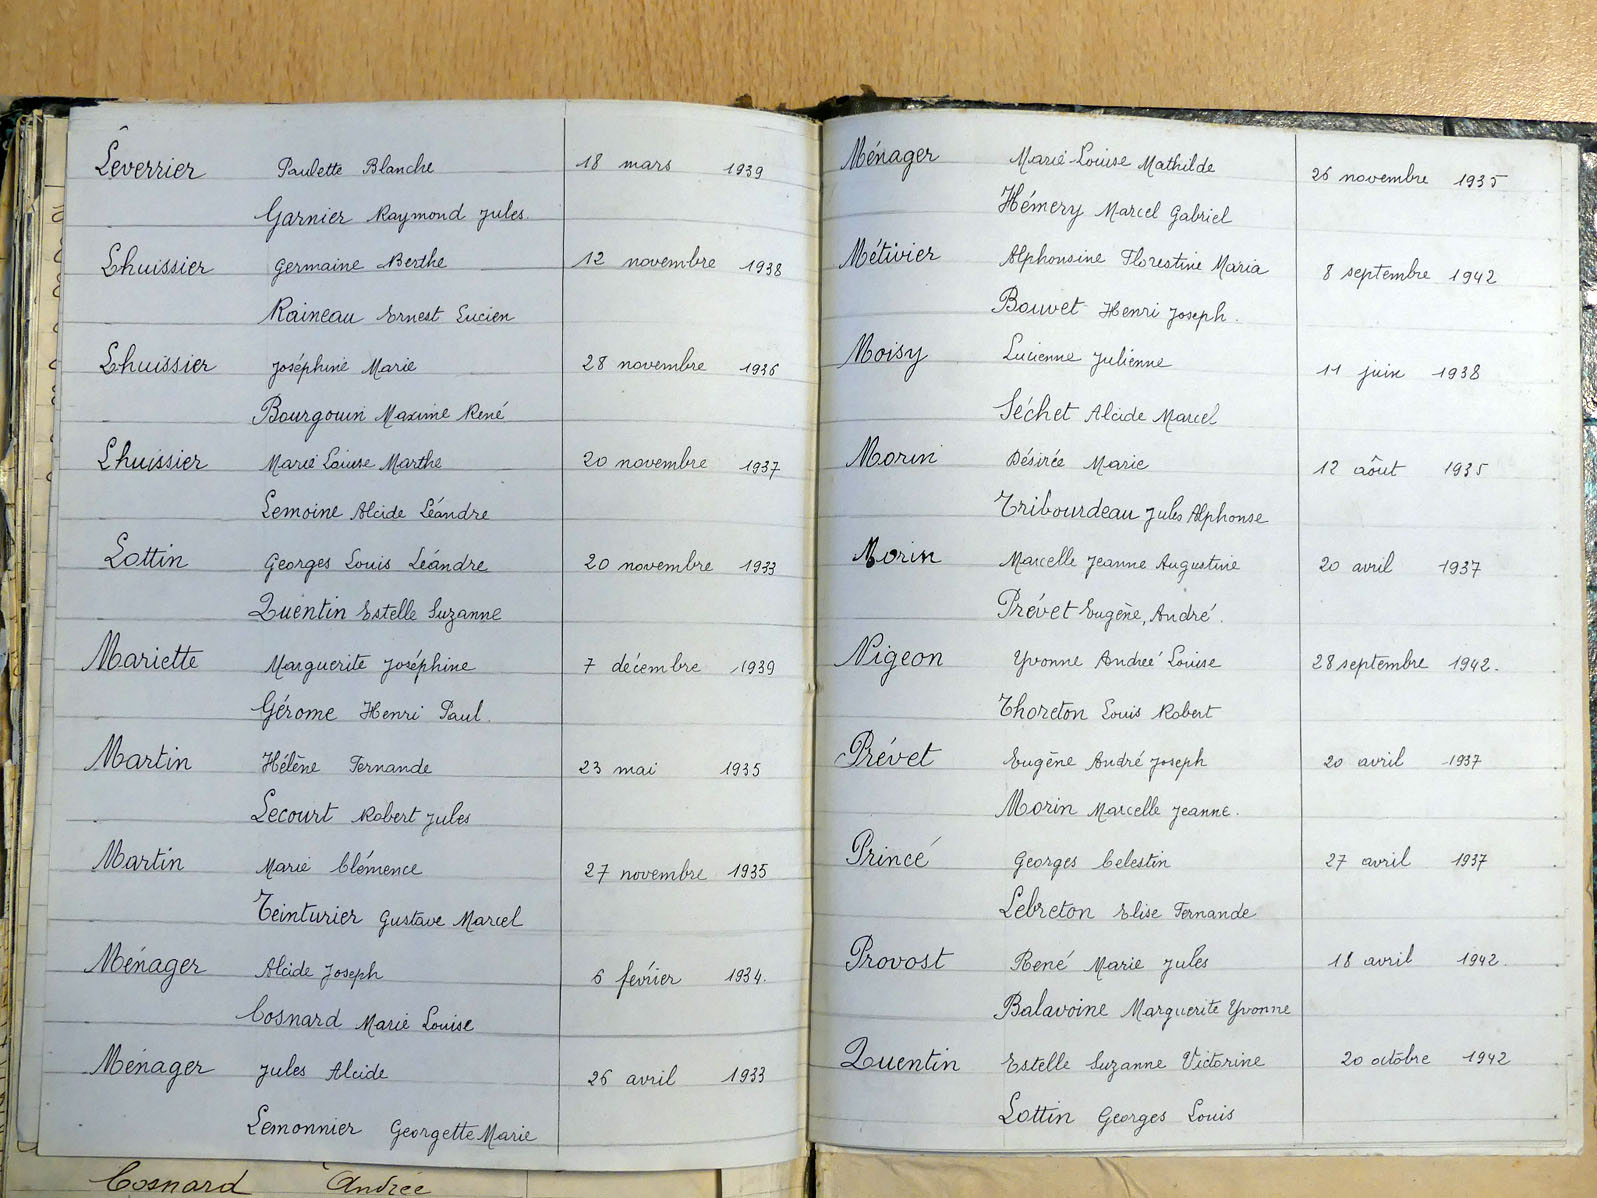 Leverrier Paulette Blanche 18 mars 1939
Garnier Raymond Jules.
Lhuissier Germaine Berthe 12 novembre 1938
Raineau Ernest Lucien
Lhuissier Joséphine Marie 28 novembre 1936
Bourgouin Maxime René
Lhuissier Marie Louise Marthe 20 novembre 1937
Lemoine Alcide Léandre
Lottin Georges Louis Léandre 20 novembre 1933
Quentin Estelle Suzanne
Mariette Marguerite Joséphine 7 décembre 1939
Gérome Henri Paul.
Martin Hélène Fernande 23 mai 1935
Lecourt Robert Jules
Martin Marie Clémence 27 novembre 1935
Teinturier Gustave Marcel
Ménager Alcide Joseph 6 février 1934.
Cosnard Marie Louise
Ménager Jules Alcide 26 avril 1933
Lemonnier Georgette Marie
Cosnard Andrée
Ménager Marie-Louise Mathilde 26 novembre 1935
Hémery Marcel Gabriel
Métivier Alphonsine Florestine Maria 8 septembre 1942
Bouvet Henri Joseph.
Moisy Lucienne Julienne 11 juin 1938
Séchet Alcide Marcel
Morin Désirée Marie 12 aôut 1935
Tribourdeau Jules Alphonse
Morin Marcelle Jeanne Augustine 20 avril 1937
Prévet Eugène, André.
Nigeon Yvonne Andreé Louise 28 septembre 1942.
Thoreton Louis Robert
Prévet Eugène André Joseph 20 avril 1937
Morin Marcelle Jeanne.
Princé Georges Celestin 27 avril 1937
Lebreton Elise Fernande
Provost René Marie Jules 18 avril 1942.
Balavoine Marguerite Yvonne
Quentin Estelle Suzanne Victorine 20 octobre 1942
Lottin Georges Louis